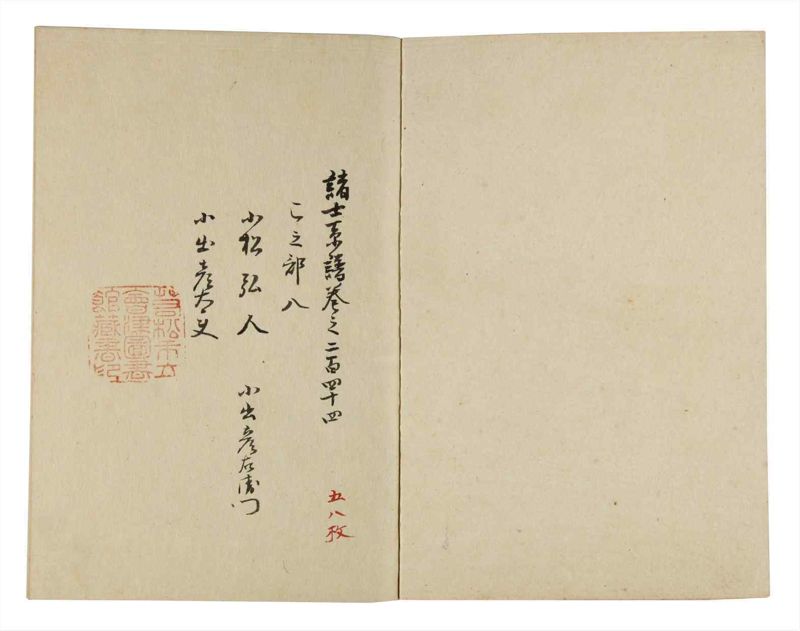 諸士系譜巻之二百四十四
五八枚
こ之部八
小松弘人
小出彦左衛門
小出彦太夫
若松市立
會津圖書
館藏書印